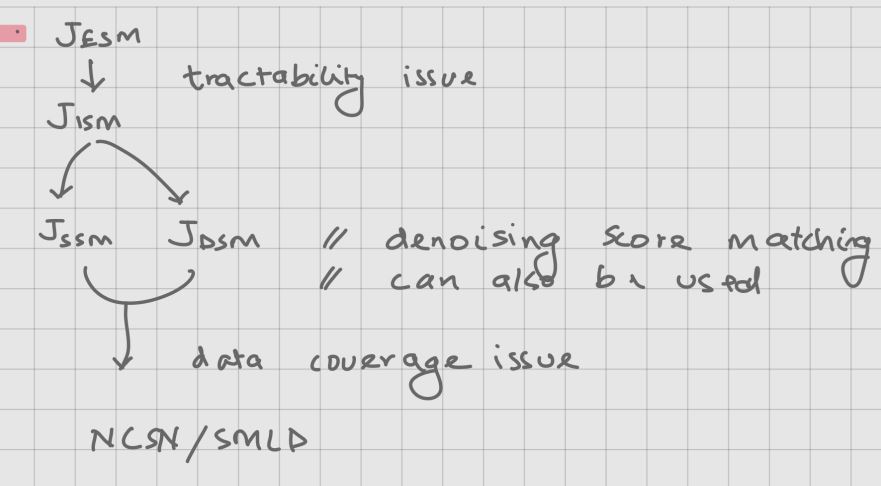 JESM
tractability issue
JISM
JSSM JDSM // denoising score matching
// can also be used
data coverage issue
NCSN/SMLD